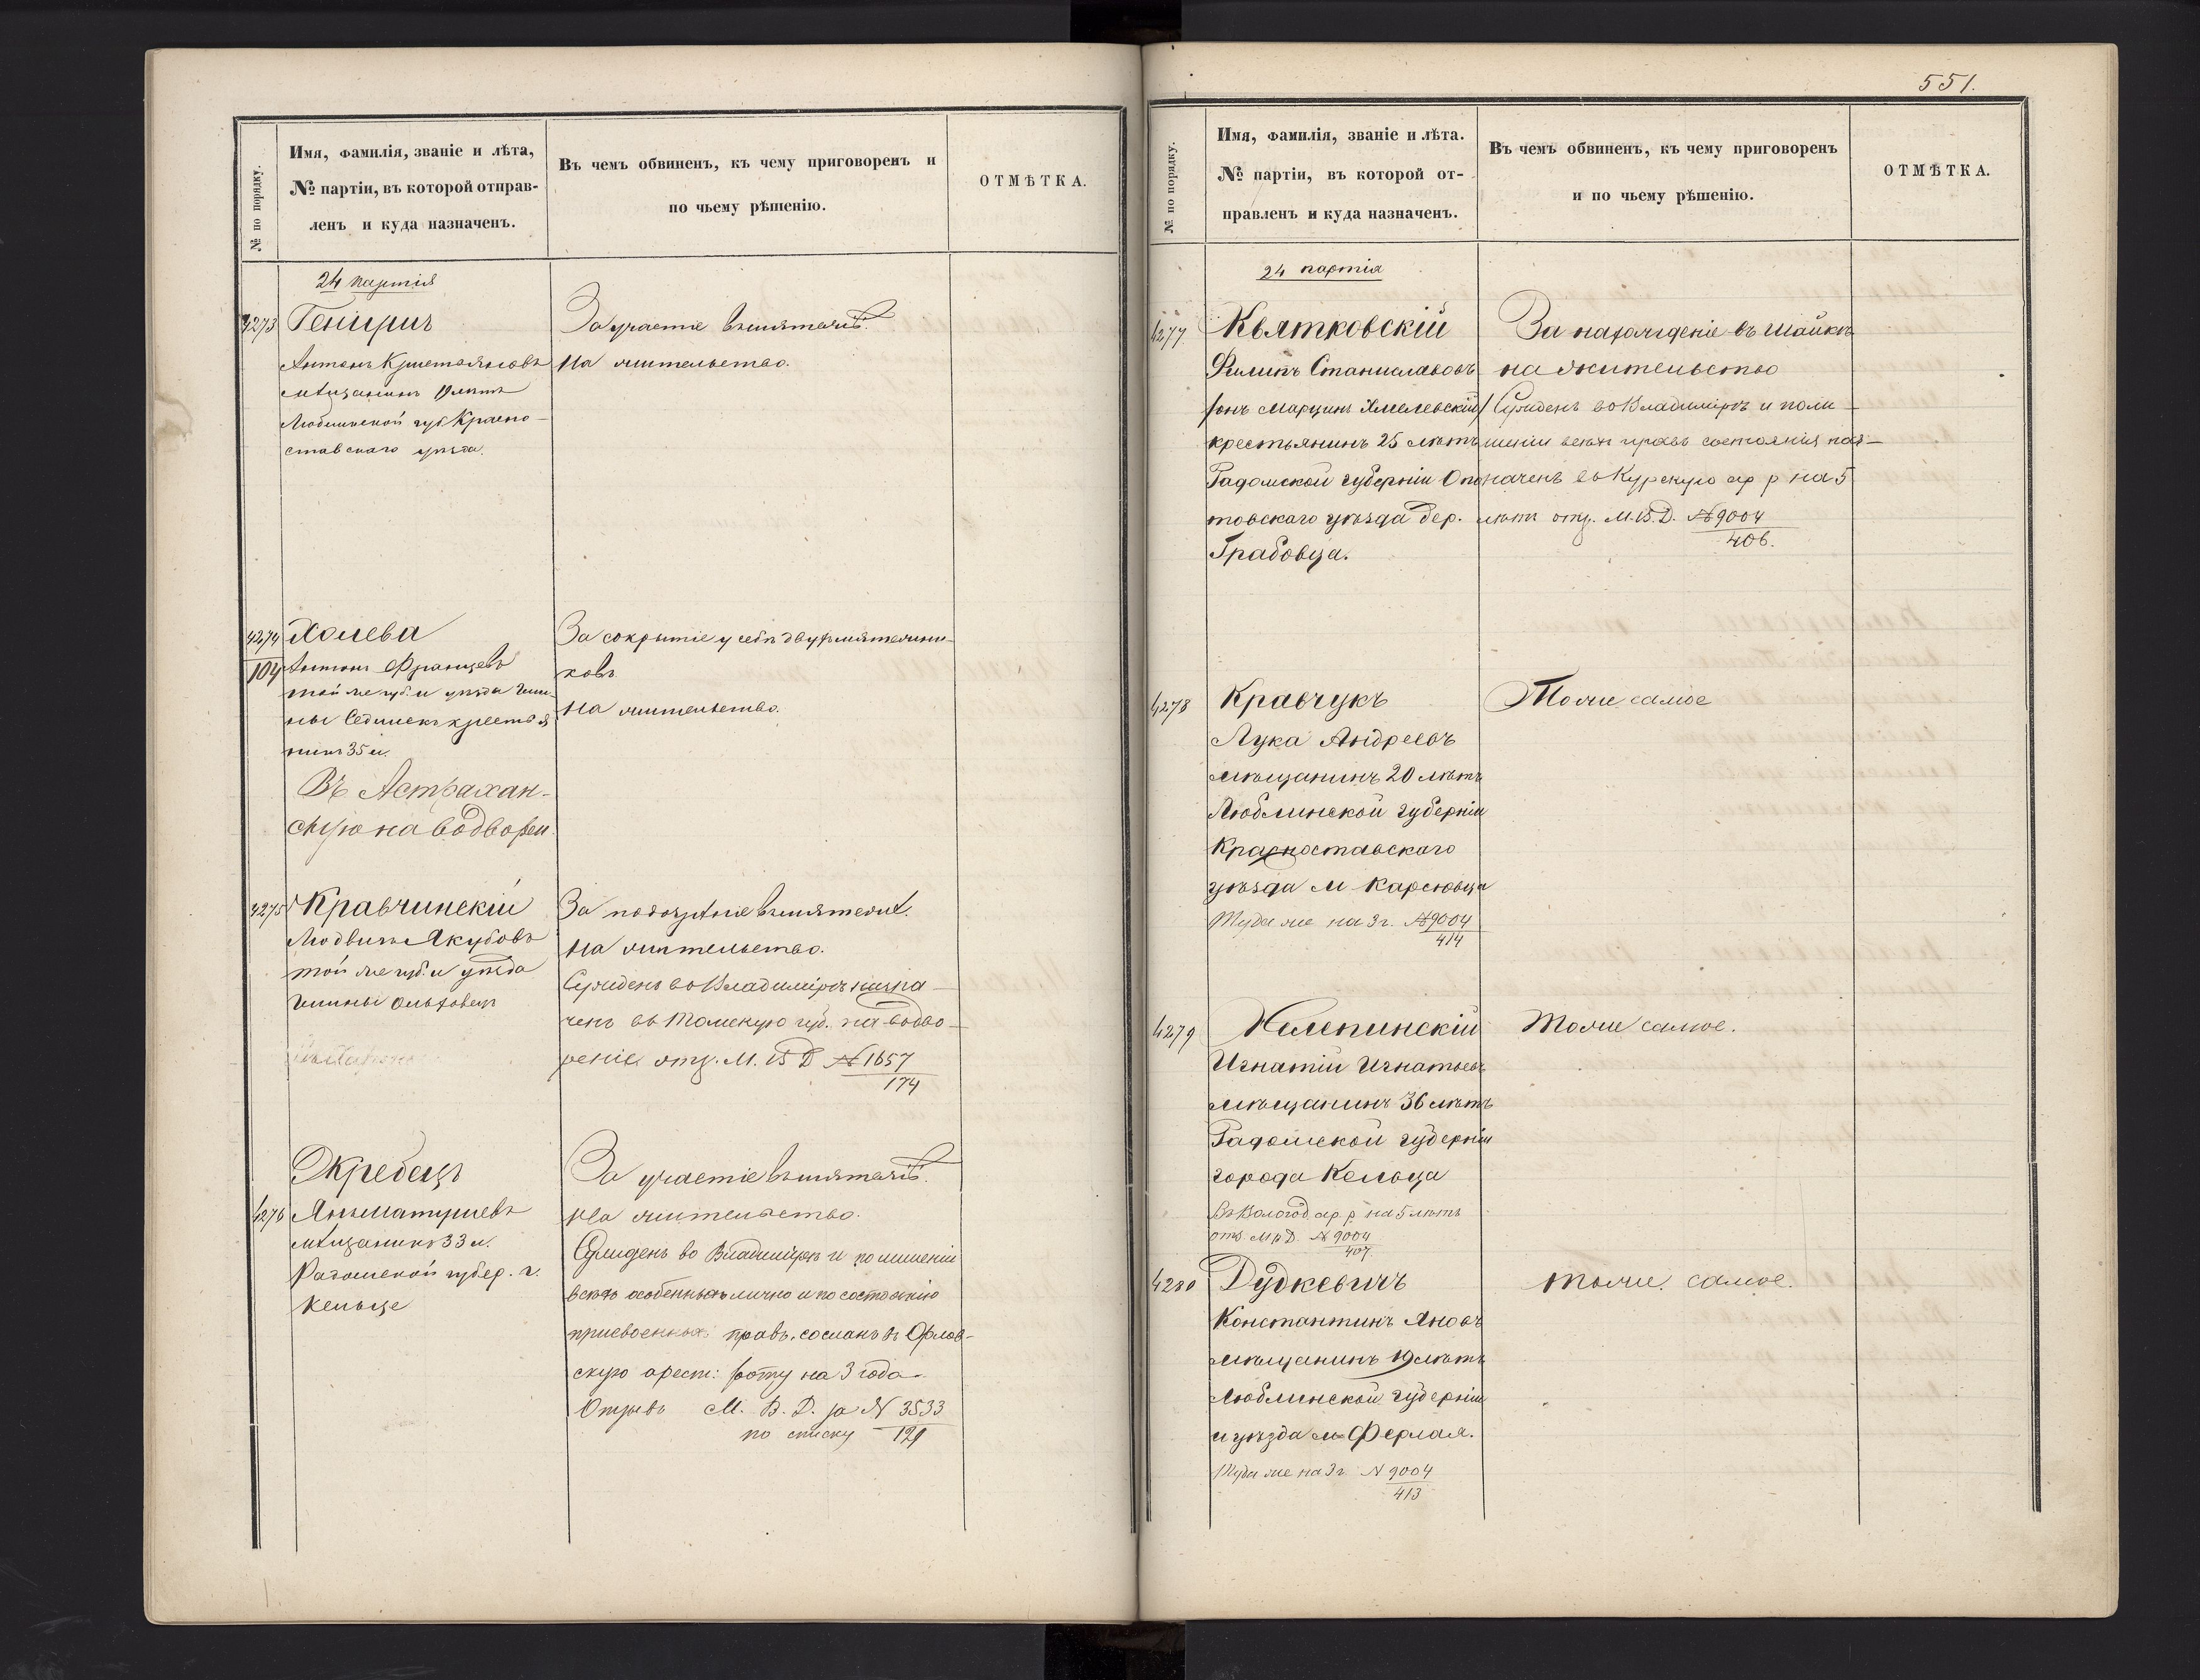 № по порядку.
Имя, фамилія, званіе и лѣта,
№ партіи, въ которой отправ-
ленъ и куда назначенъ.
Въ чемъ обвиненъ, къ чему приговоренъ и
по чьему рѣшенію.
ОТМѢТКА.
24 партія
4273
Генирихъ
Антонъ
мѣщанинъ
Люблинской губ. Красно-
ставскаго уѣзда.
За участіе въ мятежѣ.
На жительство.
4274
104
Холева
Антонъ Францевъ
той же губ. и уѣзда гми-
ны крестья
нинъ 35 л.
Въ Астрахан-
скую на водворен.
За сокрытіе у себя двухъ мятежни-
ковъ
На жительство.
4275
Кравчинскій
Людвигъ Якубовъ
той же губ. и уѣзда
гмины
За подозрѣніе въ мятежѣ.
На жительство.
Сужденъ во Владимірѣ назна-
ченъ въ Томскую губ. на водво-
реніе отз. М. В. Д. № 1657
174
4276
Жребецъ
Янъ Матушевъ
мѣщанинъ 33 л.
Радомской губер. г.
Кельце
За участіе въ мятежѣ.
На жительство.
Сужденъ во Владимірѣ и по лишеніи
всѣхъ особенныхъ лично и по состоянію
присвоенныхъ правъ, сосланъ въ Орлов-
скую арест: роту на 3 года.
Отзывъ М. В. Д. за № 3533
по списку 129
551.
№ по порядку.
Имя, фамилія, званіе и лѣта.
№ партіи, въ которой от-
правленъ и куда назначенъ.
Въ чемъ обвиненъ, къ чему приговоренъ
и по чьему рѣшенію.
ОТМѢТКА.
24 партія
4277
Квятковскій
Филипъ Станиславовъ
/онъ Марцинъ Хмелевскій/
крестьянинъ 25 лѣтъ
Радомской губерніи Опа
товскаго уѣзда дер.
Грабовца.
За нахожденіе въ шайкѣ
на жительство
Сужденъ во Владимірѣ и по ли-
шеніи всѣхъ правъ состоянія наз-
наченъ въ Курскую ар р на 5
лѣтъ отз. М. В. Д. № 9004
406.
4278
Кравчукъ
Лука Андреевъ
мѣщанинъ 20 лѣтъ
Люблинской губерніи
Красноставскаго
уѣзда м
Туда же на 3 г. № 9004
414
Тоже самое
4279
Желепинскій
Игнатій Игнатьевъ
мѣщанинъ 36 лѣтъ
Радомской губерніи
города Кельца
Въ Вологод. ар. р. на 5 лѣтъ
отз. М В Д. № 9004
407.
Тоже самое.
4280
Дудкевичъ
Константинъ Яновъ
мѣщанинъ 19 лѣтъ
Люблинской губерніи
и уѣзда м. Ферлея.
Туда же на 3 г. № 9004
413
тоже самое.